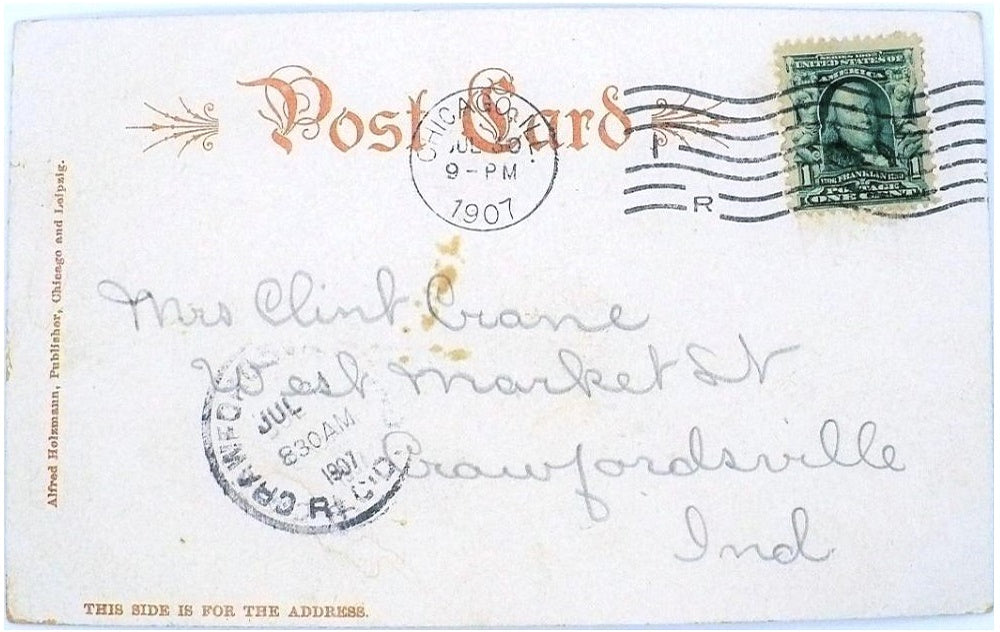 Post Card
CHICAGO,
JUL
9-PM
1907
R
SERIES 1902
UNITED STATES OF
AMERICA
FRANKLIN
POSTAGE
ONE CENT
Mrs Clint Crane
West Market St
Crawfordsville
Ind
JUL
8 30 AM
1907
REC'D.
Alfred Holzmann, Publisher, Chicago and Leipzig.
THIS SIDE IS FOR THE ADDRESS.